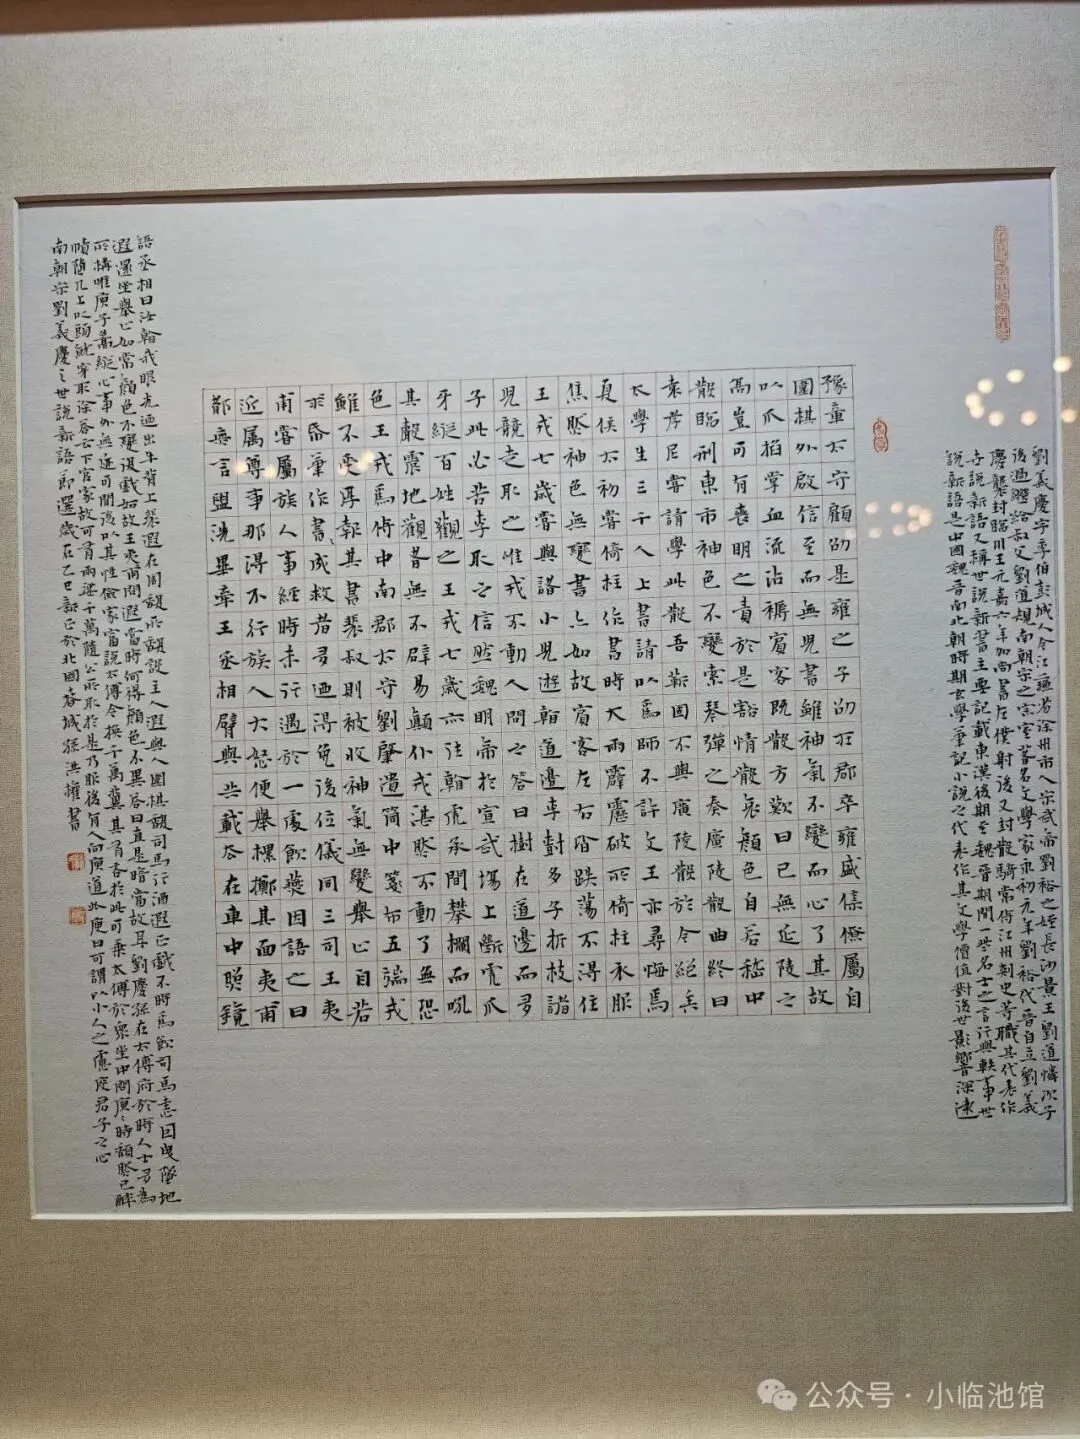 劉義慶字季伯彭城人今江蘇省徐州市人宋武帝劉裕之姪長沙景王劉道憐次子
後過繼給叔父劉道規南朝宋之宗室著名文學家永初元年劉裕代晉自立劉義
慶襲封臨川王元嘉六年加尚書左僕射後又封散騎常侍江州刺史等職其代表作
世說新語又稱世說新書主要記載東漢後期至魏晉期間一些名士之言行與軼事世
說新語是中國魏晉南北朝時期玄學筆記小說之代表作其文學價值對後世影響深遠
豫章太守顧劭是雍之子劭在郡卒雍盛集僚屬自
圍棋外啟信至而無兒書雖神氣不變而心了其故
以爪掐掌血流沾褥賓客既散方歎曰已無延陵之
高豈可有喪明之責於是豁情散哀顏色自若嵇中
散臨刑東市神色不變索琴彈之奏廣陵散曲終曰
袁孝尼嘗請學此散吾靳固不與廣陵散於今絕矣
太學生三千人上書請以為師不許文王亦尋悔焉
夏侯太初嘗倚柱作書時大雨霹靂破所倚柱衣服
焦然神色無變書亦如故賓客左右皆跌蕩不得住
王戎七歲嘗與諸小兒遊看道邊李樹多子折枝諸
兒競走取之唯戎不動人問之答曰樹在道邊而多
子此必苦李取之信然魏明帝於宣武場上斷虎爪
牙縱百姓觀之王戎七歲亦往看虎承間攀欄而吼
其聲震地觀者無不辟易顛仆戎湛然不動了無恐
色王戎為侍中南郡太守劉肇遺筒中箋布五端戎
雖不受厚報其書裴叔則被收神氣無變舉止自若
求帋筆作書、成救者多迺得免後位儀同三司王夷
甫嘗屬族人事經時未行遇於一處飲燕因語之曰
近屬尊事那得不行族人大怒便舉樏擲其面夷甫
都無言盟洗畢牽王丞相臂與共載去在車中照鏡
語丞相曰汝看我眼光迺出牛背上裴遐在周馥所馥設主人遐與人圍棋馥司馬行酒遐正戲不時為飲司馬恚因曳墜地
遐還坐舉止如常顏色不變復戲如故王夷甫問遐當時何得顏色不異答曰直是暗當故耳劉慶孫在太傅府於時人士多為
所構唯庾子嵩縱心事外無迹可間後以其性儉家富說太傅令換千萬冀其有吝於此可乘太傅於眾坐中問庾、時頹然已醉
幘隨几上以頭就穿取徐答云下官家故可有兩娑千萬隨公所取於是乃服後有人向庾道此庾曰可謂以小人之慮度君子之心
南朝宋劉義慶之世說新語節選歲在乙巳新正於北國春城孫洪權書
公众号·小临池馆